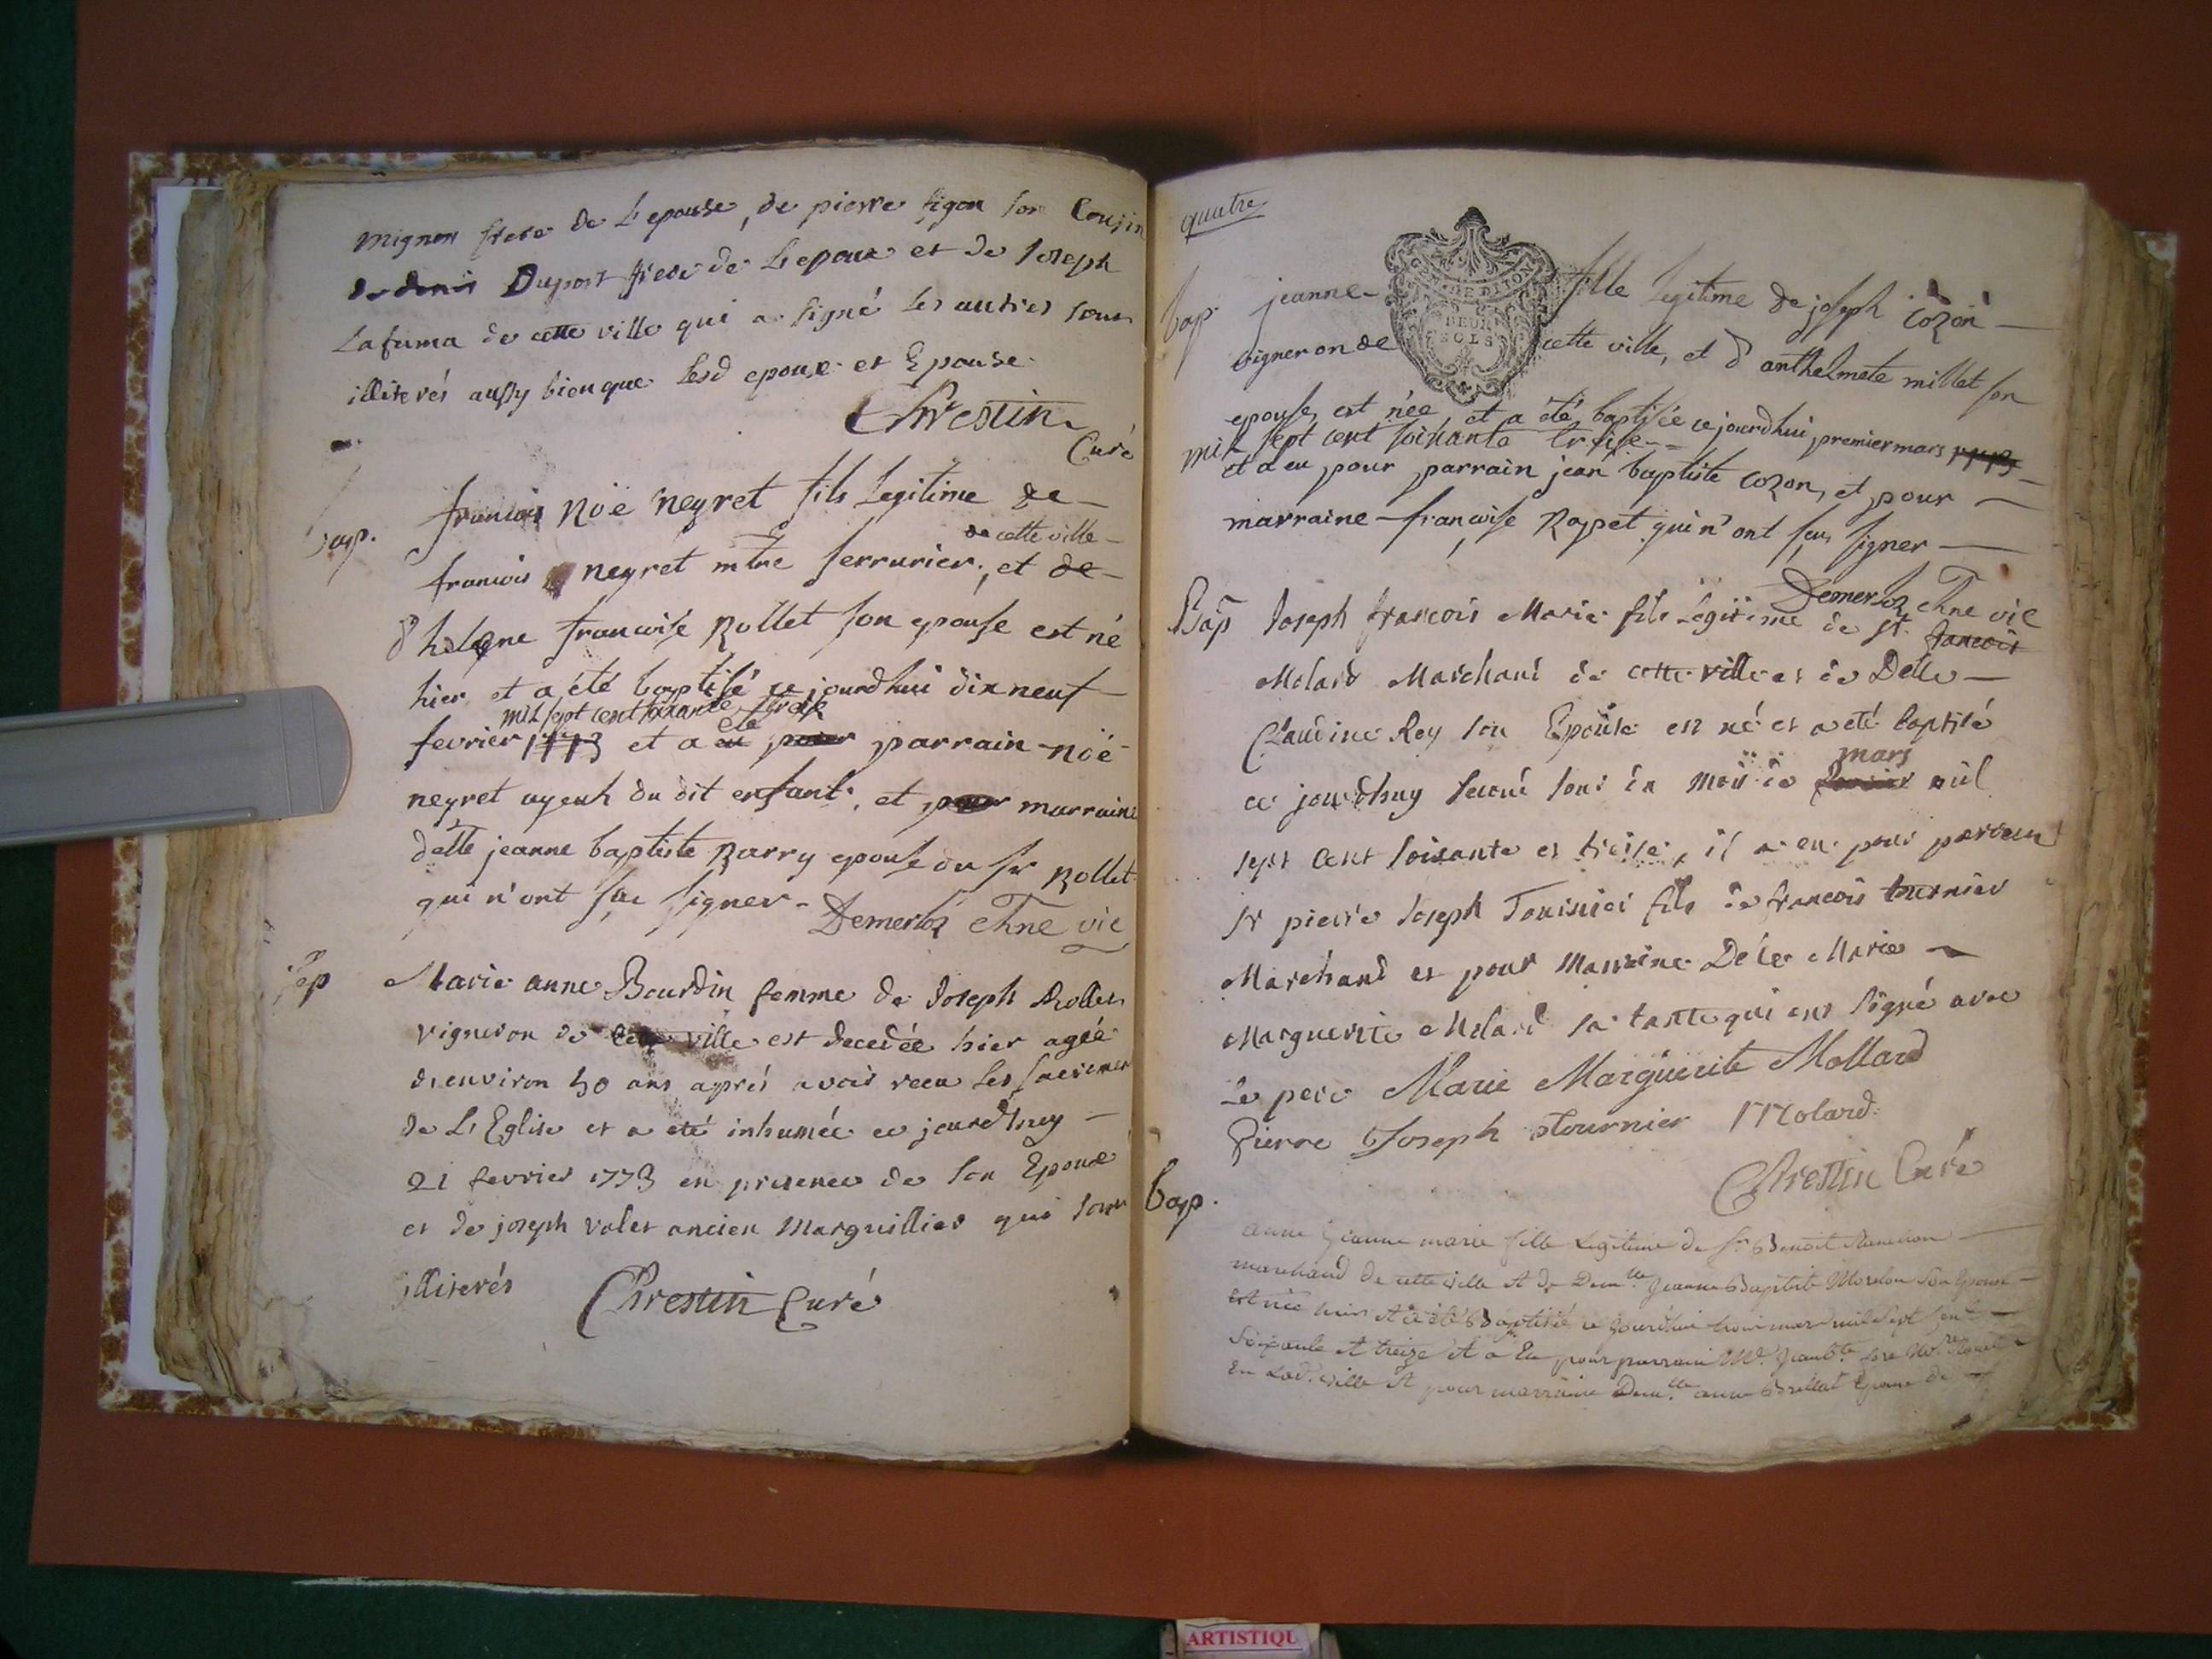 mignon frere de L'epouse, de pierre figon son Cousin
de denis Duport frere de L'epoux et de Joseph
Lafuma de cette ville qui a signé les autres sont
illiterés aussy bien que lesd epoux et Epouse
Chrestin
Curé
bap.
francois noë neyret fils legitime de
de cette ville
francois neyret mtre serrurier, et de
d'helene francoise Rollet son epouse est né
hier et a été baptisé ce jourdhui dix neuf
mil sept cent soixante treize
fevrier 1773 et a eu pour parrain noë
neyret ayeuh du dit enfant, et pour marraine
delle jeanne baptiste Barry epouse du sr Rollet
qui n'ont scu signer. Demerloz Chne vic
sep
Marie anne Bourdin femme de Joseph Rollet
vigneron de cette ville est decedée hier agée
d'environ 50 ans aprés avoir recu les sacremen
de L'Eglise et a eté inhumée ce jourdhuy
21 fevrier 1773 en presence de son Epoux
et de joseph valet ancien Marguillier qui sont
illiterés Chrestin Curé
quatre
bap.
jeanne fille legitime de joseph Cozon
GEN DE DIJON
DEUX
SOLS
vigneron de cette ville, et d'anthelmete millet son
epouse, est née, et a été baptisée ce jourdhui premier mars 1773
mil sept cent soixante treise
et a eu pour parrain jean baptiste Cozon, et pour
marraine francoise Roypet qui n'ont scu signer
Demerloz Chne vic
Bap
Joseph francois Marie fils legitime de Sr francois
Molard Marchand de cette ville et de Delle
Claudine Rey son Epouse est né et a eté baptisé
mars
ce jourdhuy second jour du mois de mil
sept cent soixante et treise, il a eu pour parrain
sr pierre Joseph Tournier fils de francois tournier
Marchand et pour Marraine Delle Marie
Marguerite Molard sa tante qui ont signé avec
Le pere Marie Marguerite Mollard
Pierre Joseph Tournier Molard
Chrestin Curé
bap.
anne Jeanne marie fille Legitime de Sr Benoit
marchand de cette ville et de Demlle Jeanne Baptiste Morelon son Epouse
est née hier et a été Baptisée ce jourdhui trois mars mil sept Cent
soixante et treize et a Eu pour parrain Mr Jean bte
En Lad. ville et pour marraine Demlle anne Brillat Epouse de